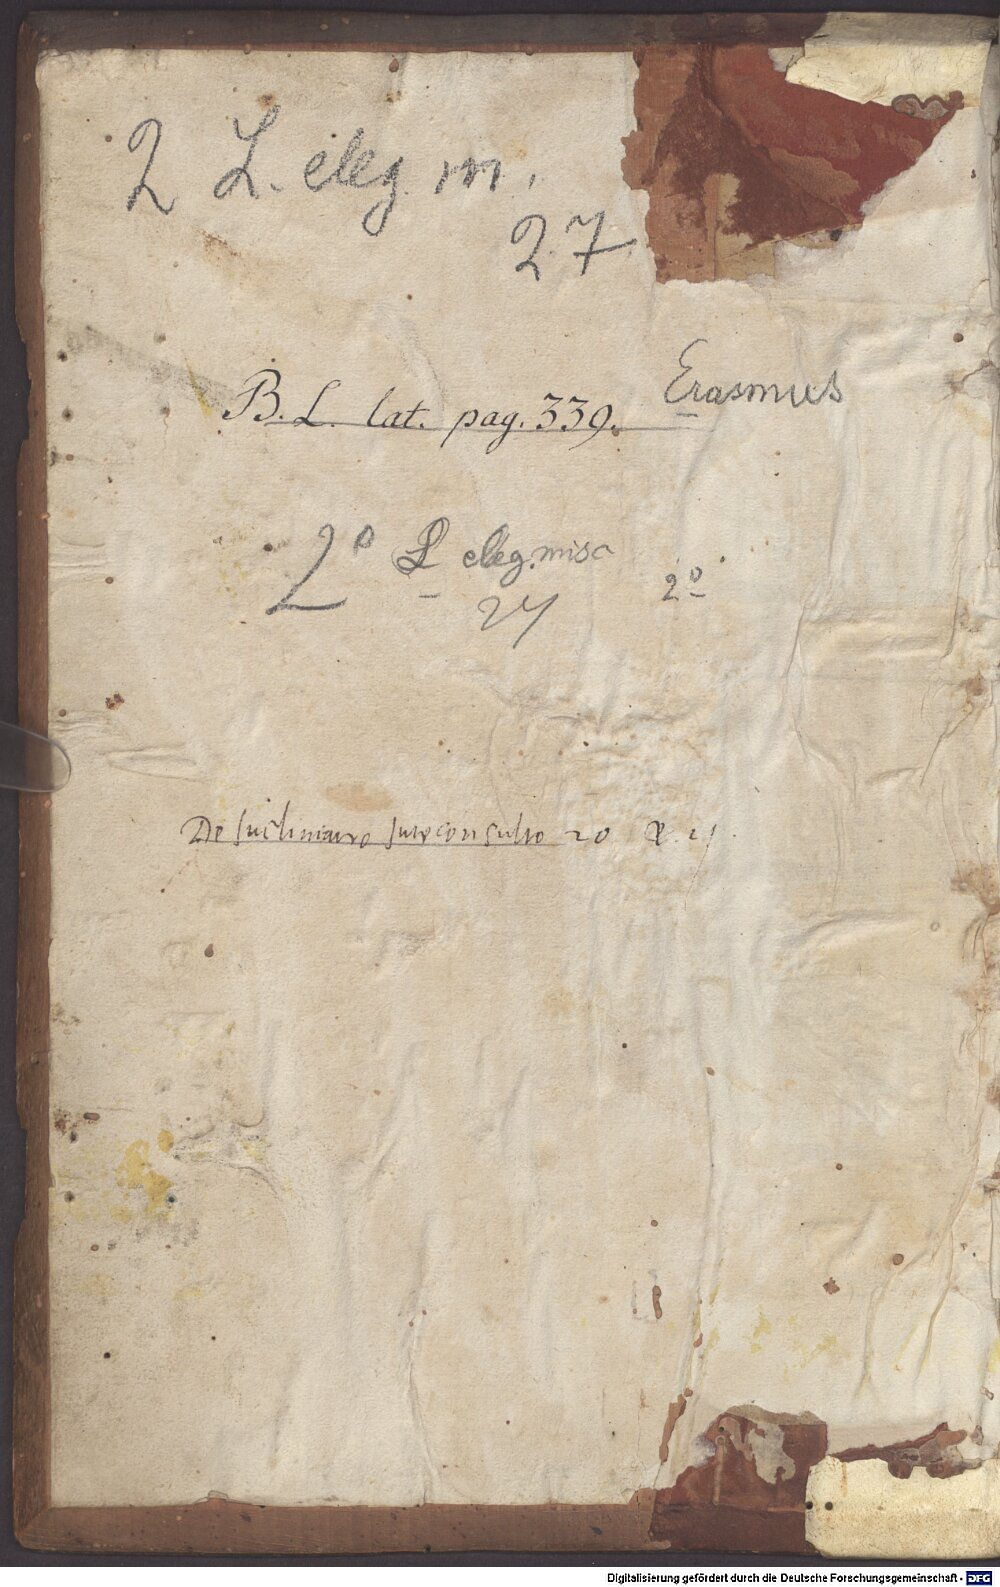 2 L. eleg. m.
27
B. L. lat. pag. 339.
Erasmus
2° L eleg. misc
27
2°
De Iureconsulto 20 & 21.
Digitalisierung gefördert durch die Deutsche Forschungsgemeinschaft - DFG